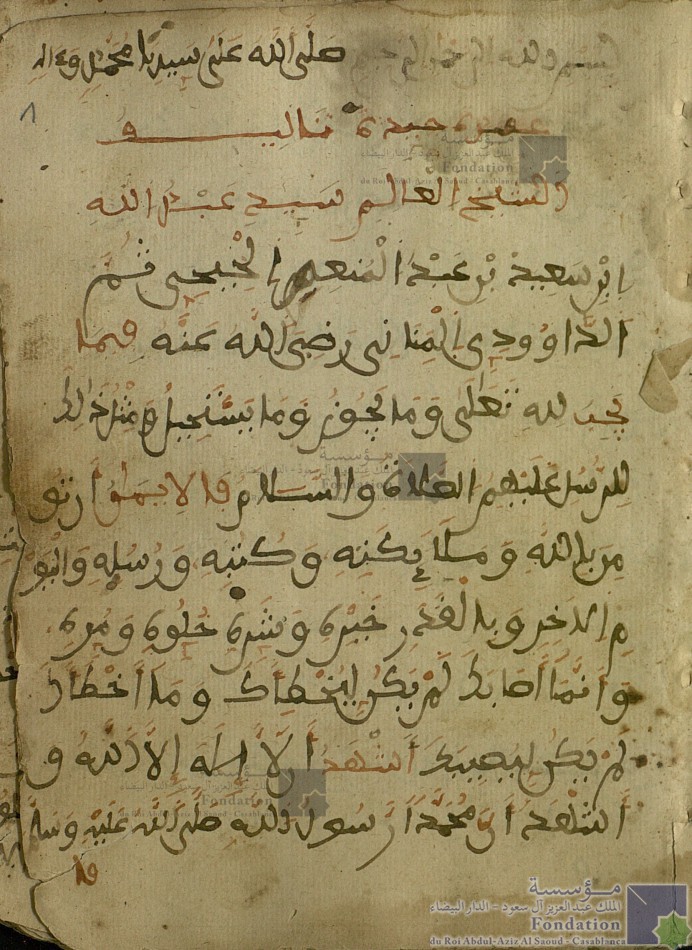 بسم الله الرحمن الرحيم صلى الله على سيدنا محمد وءاله
عقيدة جيدة تاليف
الشيخ العالم سيد عبد الله
ابن سعيد بن عبد المنعيم الحيحي ثم
الداوودي المناني رضي الله عنه فيما
يجب لله تعلى وما يجوز وما يستحيل ومثل ذالك
للرسل عليهم الصلاة والسلام قال الايمان ان تو
من بالله وملايكته وكتبه ورسله واليو
م الاخر وبالقدر خيره وشره حلوه ومره
وانما اصابك لم يكن ليخطأك وما اخطأك
لم يكن ليصيبك أشهد ألا إله إلا الله و
أشهد أن محمدا رسول الله صلى الله عليه وسلم
قا
مؤسسة
الملك عبد العزيز آل سعود - الدار البيضاء
Fondation
du Roi Abdul-Aziz Al Saoud - Casablanca